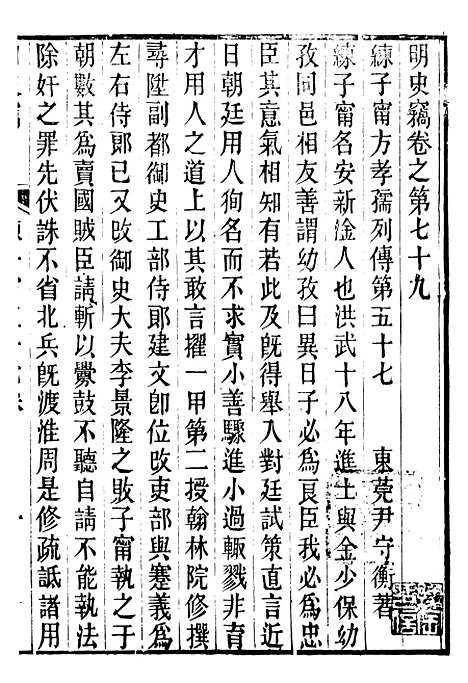 明史竊卷之第七十九
練子甯方孝孺列傳第五十七
東莞尹守衡著
練子甯名安新淦人也洪武十八年進士與金少保幼
孜同邑相友善謂幼孜曰異日子必爲良臣我必爲忠
臣其意氣相知有若此及旣得舉入對廷試策直言近
日朝廷用人狥名而不求實小善驟進小過輙戮非育
才用人之道上以其敢言擢一甲第二授翰林院修撰
尋陞副都御史工部侍郞建文卽位改吏部與蹇義爲
左右侍郞已又改御史大夫李景隆之敗子甯執之于
朝數其爲賣國賊臣請斬以釁鼓不聽自請不能執法
除奸之罪先伏誅不省北兵旣渡淮周是修疏詆諸用